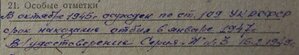 21. Особые отметки
В октябре 1945г. осужден по ст. 109 УК РСФСР
срок наказания отбыл 6 января 1947г.
Удостоверение Серия